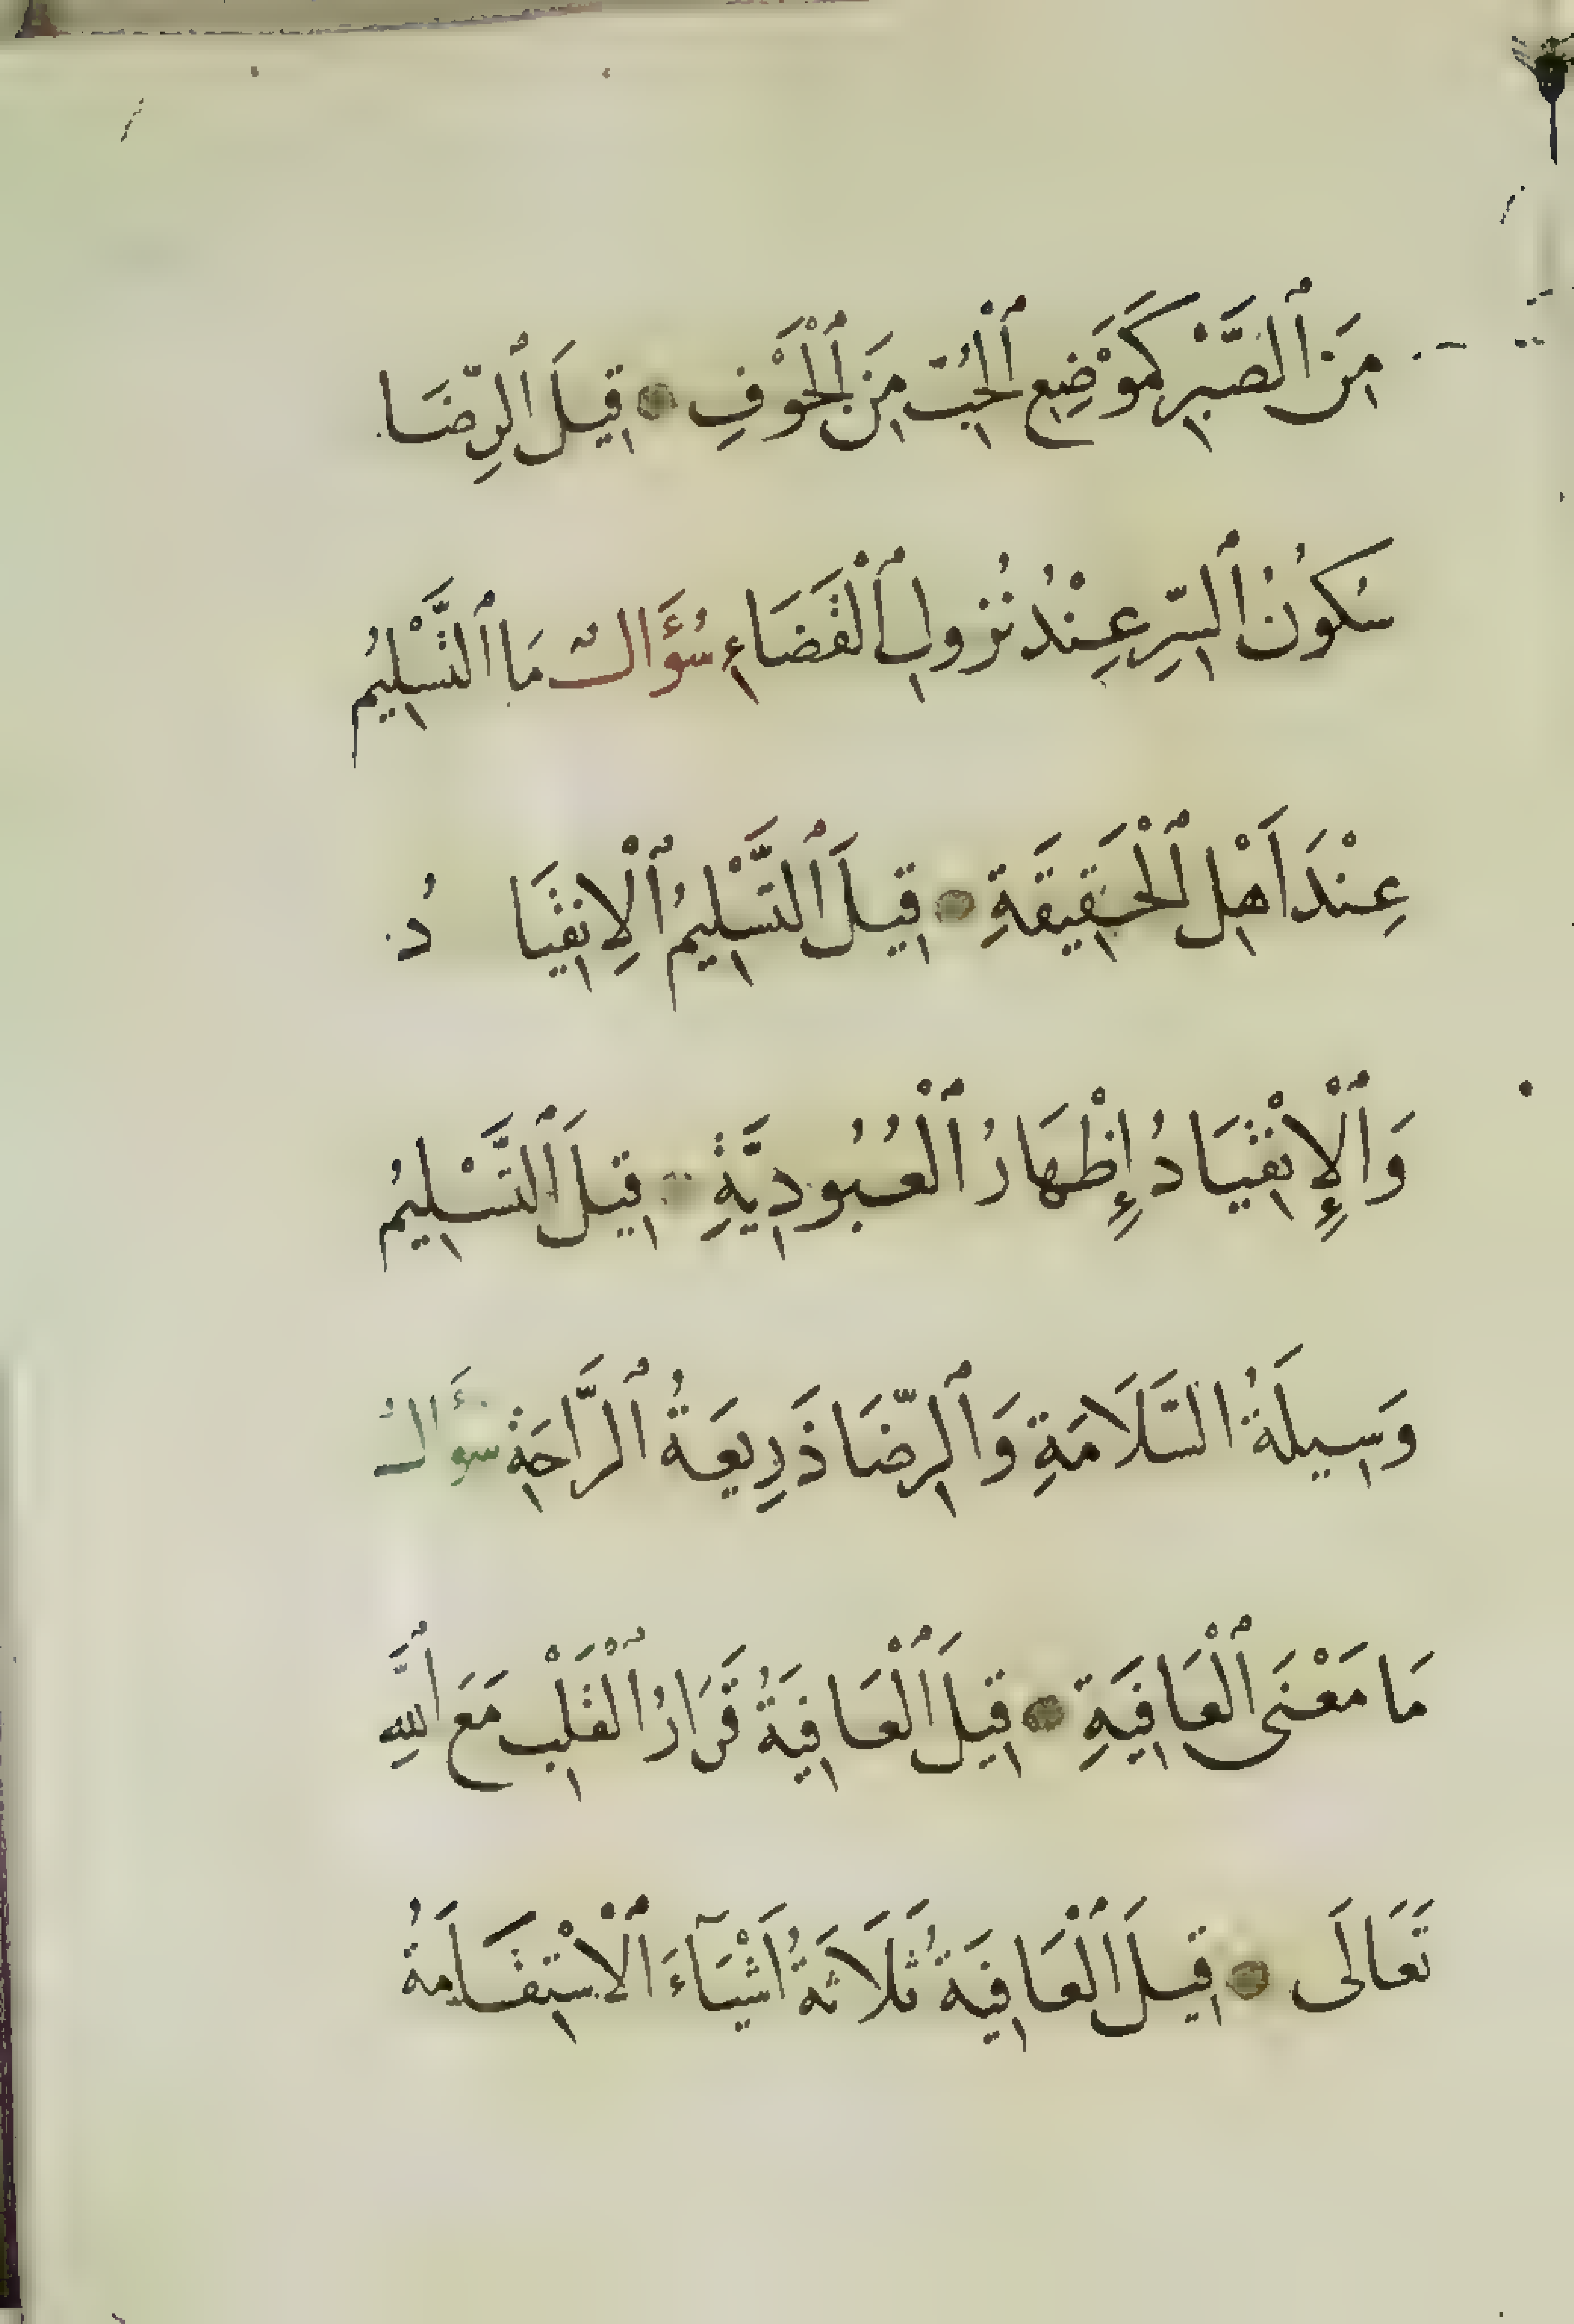 مِنَ ٱلصَّبْرِ كَمَوْضِعِ ٱلْحُبِّ مِنَ ٱلْخَوْفِ قِيلَ ٱلرِّضَا
سُكُونُ ٱلسِّرِ عِنْدَ نُزُولِ ٱلْقَضَاءِ سُؤَالٌ مَا ٱلتَّسْلِيمُ
عِنْدَ اَهْلِ ٱلْحَقِيقَةِ قِيلَ ٱلتَّسْلِيمُ ٱلْاِنْقِيَا دُ
وَٱلْإِنْقِيَادُ إِظْهَارُ ٱلْعُبُودِيَّةِ قِيلَ ٱلتَّسْلِيمُ
وَسِيلَةُ السَّلَامَةِ وَٱلرِّضَا ذَرِيعَةُ ٱلرَّاحَةِ سُؤَالُ
مَا مَعْنَى ٱلْعَافِيَةِ قِيلَ ٱلْعَافِيَةُ قَرَارُ ٱلْقَلْبِ مَعَ ٱللَّهِ
تَعَالَى قِيلَ ٱلْعَافِيَةُ ثَلَاثَةُ اَشْيَآءَ ٱلْاسْتِقَامَةُ